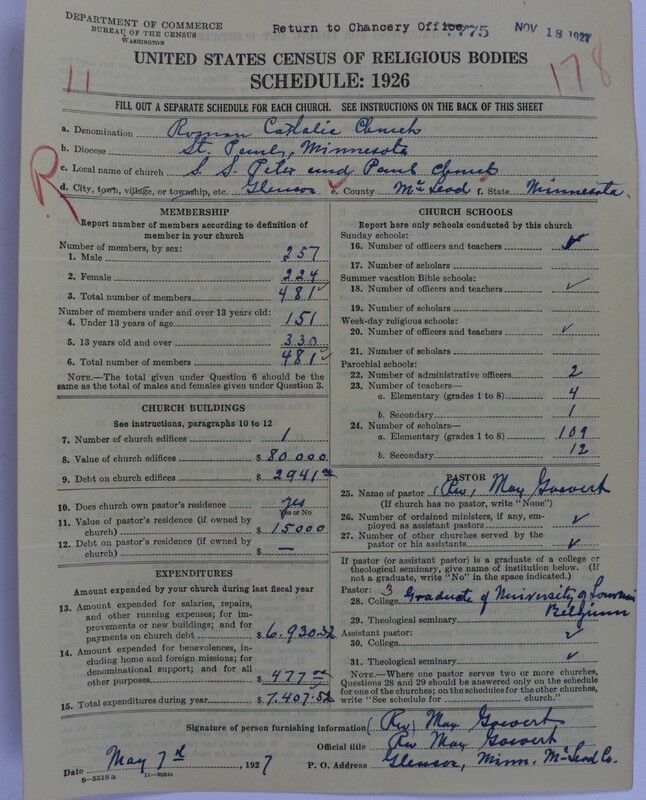 DEPARTMENT OF COMMERCE
BUREAU OF THE CENSUS
WASHINGTON
Return to Chancery Office
7775
NOV 18 1927
UNITED STATES CENSUS OF RELIGIOUS BODIES
SCHEDULE: 1926
11
178
FILL OUT A SEPARATE SCHEDULE FOR EACH CHURCH. SEE INSTRUCTIONS ON THE BACK OF THIS SHEET
R
a. Denomination Roman Catholic Church
b. Diocese St. Paul, Minnesota
c. Local name of church S. S. Peter and Paul Church
d. City, town, village, or township, etc. Glencoe e. County Mc Leod f. State Minnesota.
MEMBERSHIP
Report number of members according to definition of
member in your church
Number of members, by sex:
1. Male 257
2. Female 224
3. Total number of members 481
Number of members under and over 13 years old:
4. Under 13 years of age 151
5. 13 years old and over 330
6. Total number of members 481
NOTE.—The total given under Question 6 should be the
same as the total of males and females given under Question 3.
CHURCH BUILDINGS
See instructions, paragraphs 10 to 12
7. Number of church edifices 1
8. Value of church edifices $ 80000
9. Debt on church edifices $ 2941
10. Does church own pastor's residence yes
Yes or No
11. Value of pastor's residence (if owned by
church) $ 15000
12. Debt on pastor's residence (if owned by
church) $ —
EXPENDITURES
Amount expended by your church during last fiscal year
13. Amount expended for salaries, repairs,
and other running expenses; for im-
provements or new buildings; and for
payments on church debt $ 6,930.52
14. Amount expended for benevolences, in-
cluding home and foreign missions; for
denominational support; and for all
other purposes $ 477
15. Total expenditures during year $ 7,407.52
CHURCH SCHOOLS
Report here only schools conducted by this church
Sunday schools:
16. Number of officers and teachers
17. Number of scholars
Summer vacation Bible schools:
18. Number of officers and teachers ✓
19. Number of scholars
Week-day religious schools:
20. Number of officers and teachers ✓
21. Number of scholars
Parochial schools:
22. Number of administrative officers 2
23. Number of teachers—
a. Elementary (grades 1 to 8) 4
b. Secondary 1
24. Number of scholars—
a. Elementary (grades 1 to 8) 109
b. Secondary 12
PASTOR
25. Name of pastor (Rev, Max Goevert
(If church has no pastor, write "None")
26. Number of ordained ministers, if any, em-
ployed as assistant pastors ✓
27. Number of other churches served by the
pastor or his assistants ✓
If pastor (or assistant pastor) is a graduate of a college or
theological seminary, give name of institution below. (If
not a graduate, write "No" in the space indicated.)
Pastor: 3
28. College Graduate of University of Louvain
Belgium
29. Theological seminary
Assistant pastor:
30. College ✓
31. Theological seminary ✓
NOTE.—Where one pastor serves two or more churches,
Questions 28 and 29 should be answered only on the schedule
for one of the churches; on the schedules for the other churches,
write "See schedule for church."
Signature of person furnishing information (Rev) Max Goevert
Official title Rev Max Goevert
Date May 7th, 1927 P. O. Address Glencoe, Minn. Mc Leod Co.
8-5519a